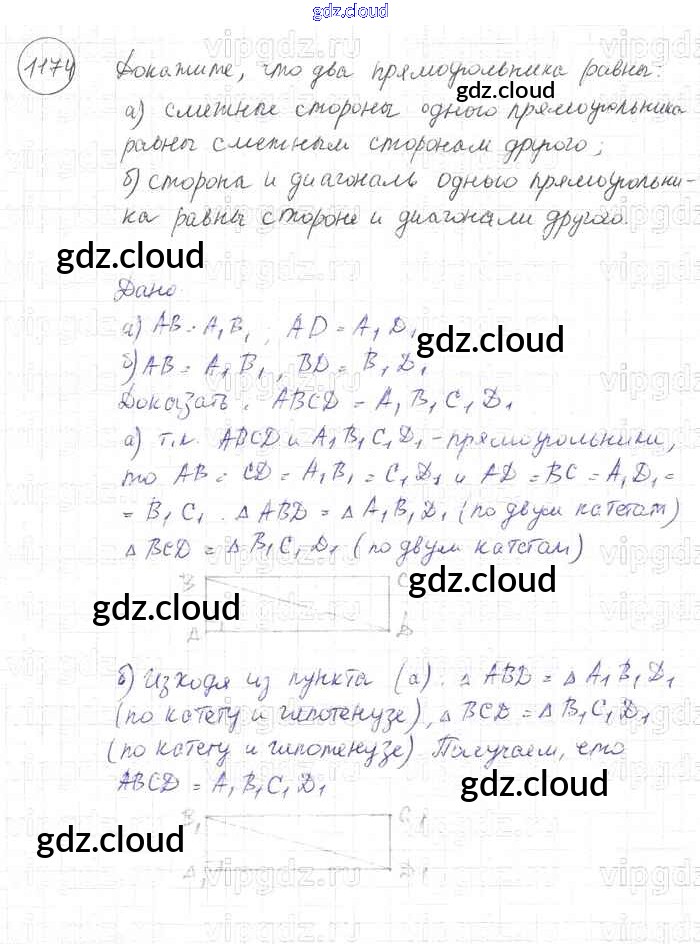 gdz.cloud
1174 Докажите, что два прямоугольника равны:
а) смежные стороны одного прямоугольника
равны смежным сторонам другого;
б) сторона и диагональ одного прямоугольни-
ка равны стороне и диагонали другого.
Дано
а) AB = A₁B₁, AD = A₁D₁
б) AB = A₁B₁, BD = B₁D₁
Доказать: ABCD = A₁B₁C₁D₁
а) т.к. ABCD и A₁B₁C₁D₁ - прямоугольники,
то AB = CD = A₁B₁ = C₁D₁ и AD = BC = A₁D₁ =
= B₁C₁. △ABD = △A₁B₁D₁ (по двум катетам)
△BCD = △B₁C₁D₁ (по двум катетам)
B C
A D
б) Исходя из пункта (а). △ABD = △A₁B₁D₁
(по катету и гипотенузе), △BCD = △B₁C₁D₁
(по катету и гипотенузе). Получаем, что
ABCD = A₁B₁C₁D₁
B₁ C₁
A₁ D₁
gdz.cloud
gdz.cloud
gdz.cloud
gdz.cloud
gdz.cloud
gdz.cloud
gdz.cloud
vipgdz.ru